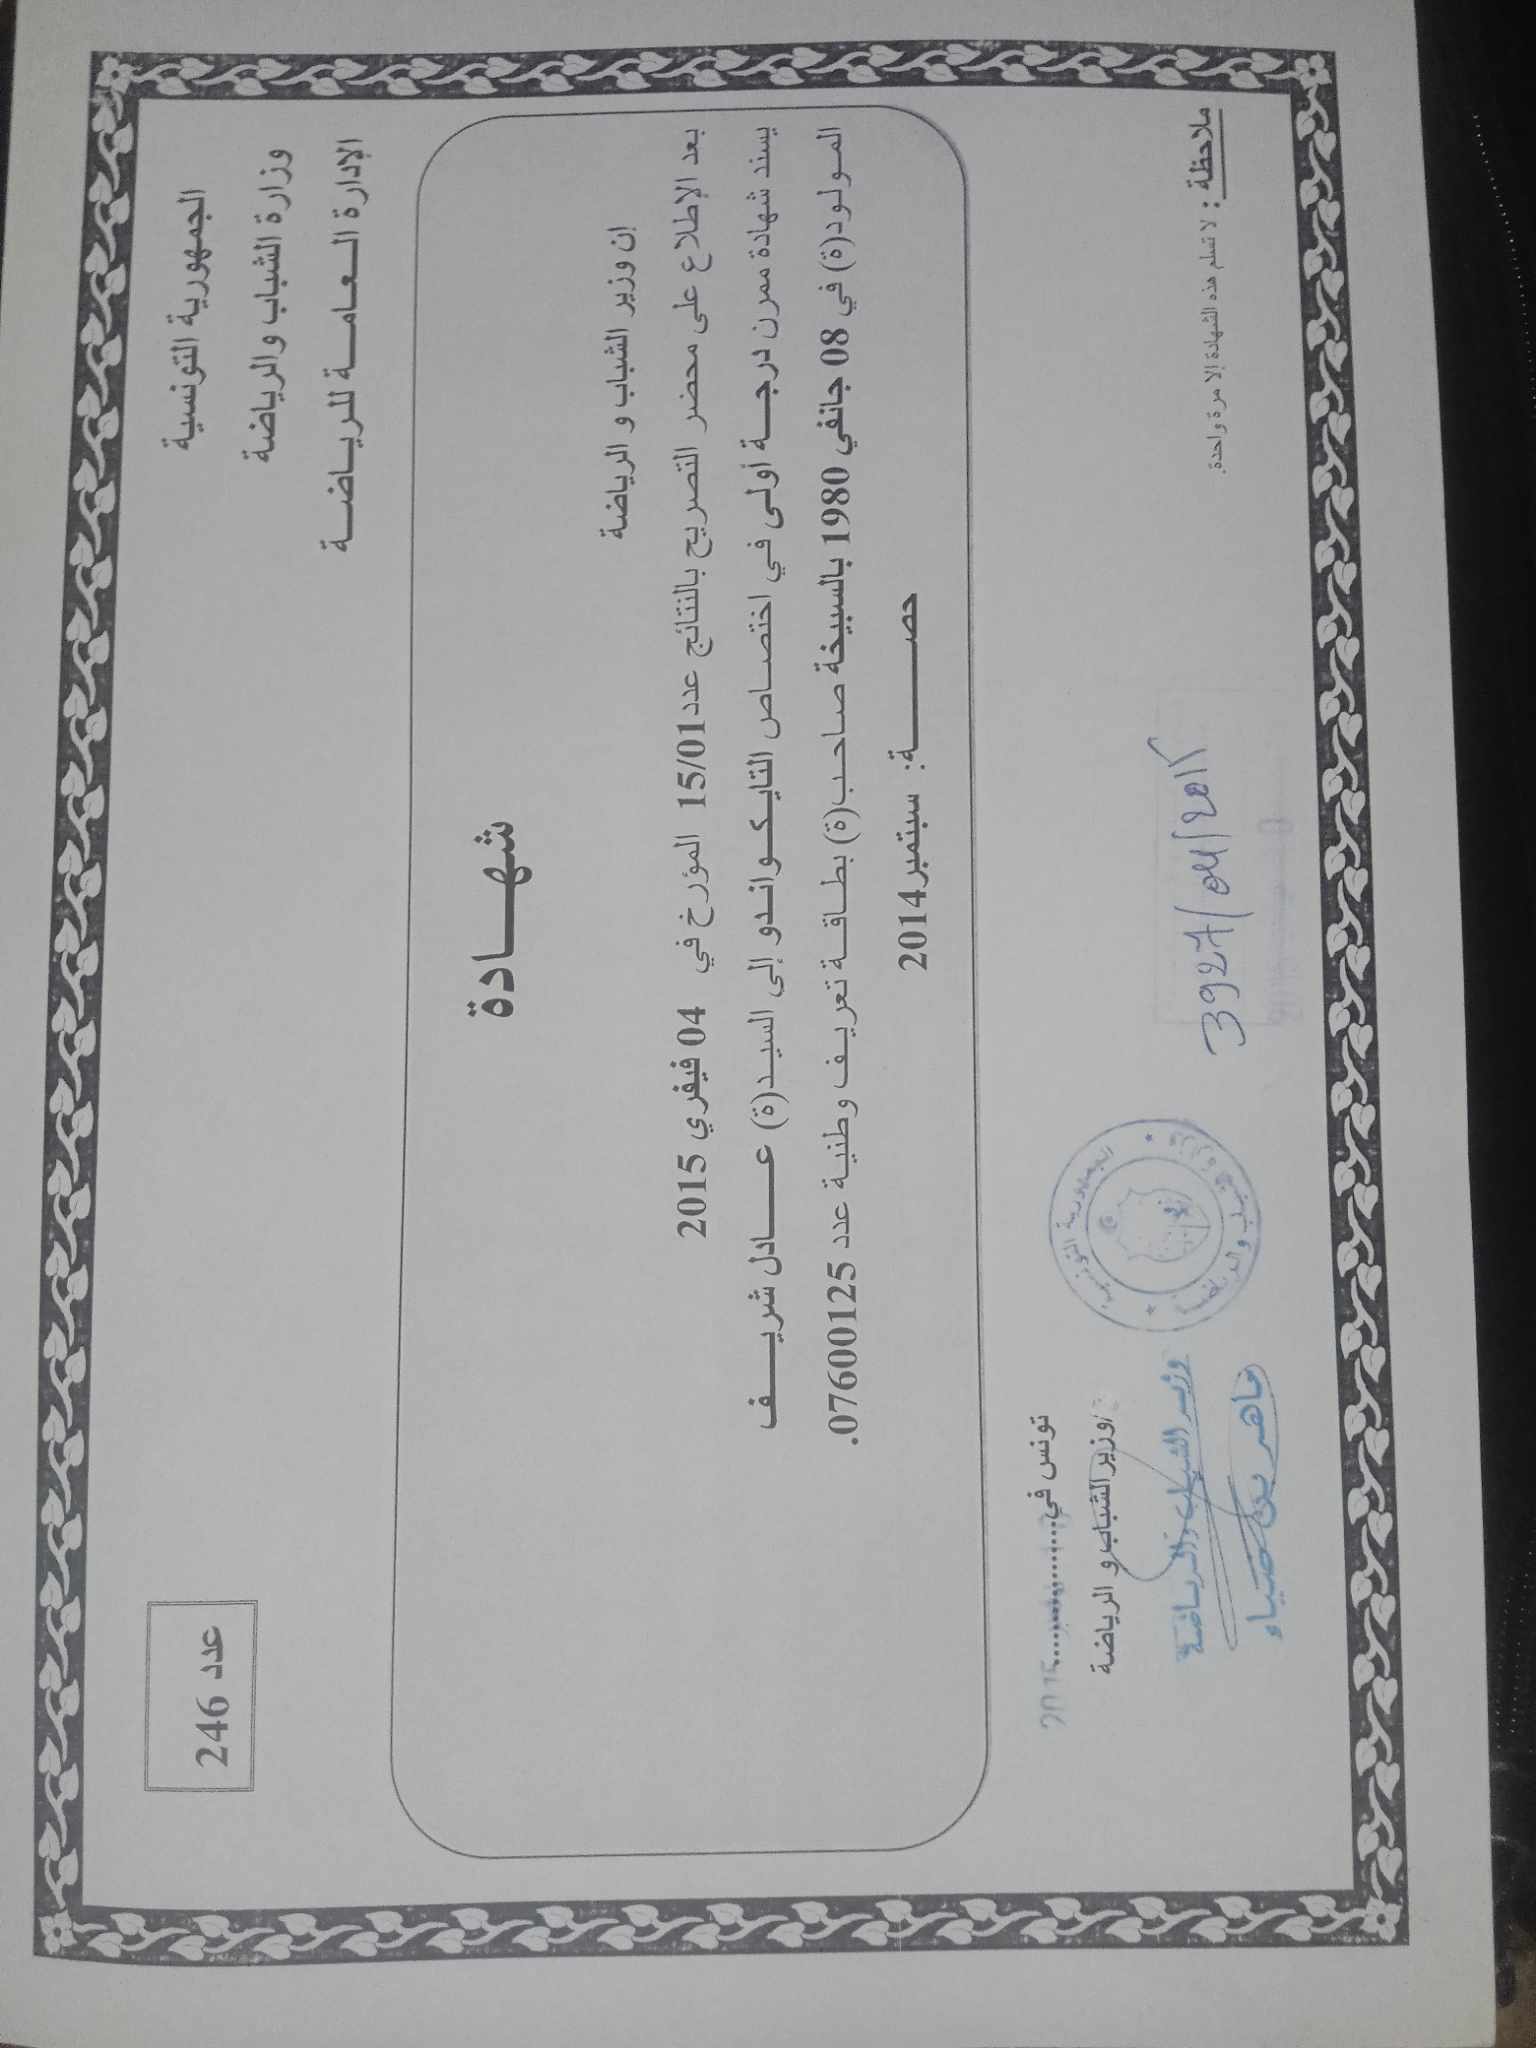 الجمهورية التونسية
وزارة الشباب والرياضة
الإدارة العامة للرياضة
عدد 246
شهادة
إن وزير الشباب و الرياضة
بعد الإطلاع على محضر التصريح بالنتائج عدد 15/01 المؤرخ في 04 فيفري 2015
يسند شهادة ممرن درجة أولى في اختصاص التايكواندو إلى السيد(ة) عادل شريف
المولود(ة) في 08 جانفي 1980 بالسبيخة صاحب(ة) بطاقة تعريف وطنية عدد 07600125.
حصة: سبتمبر 2014
تونس في............ 2015
وزير الشباب و الرياضة
الجمهورية التونسية
وزير الشباب والرياضة
ماهر بن ضياء
3927/04/2015
ملاحظة : لا تسلم هذه الشهادة إلا مرة واحدة.